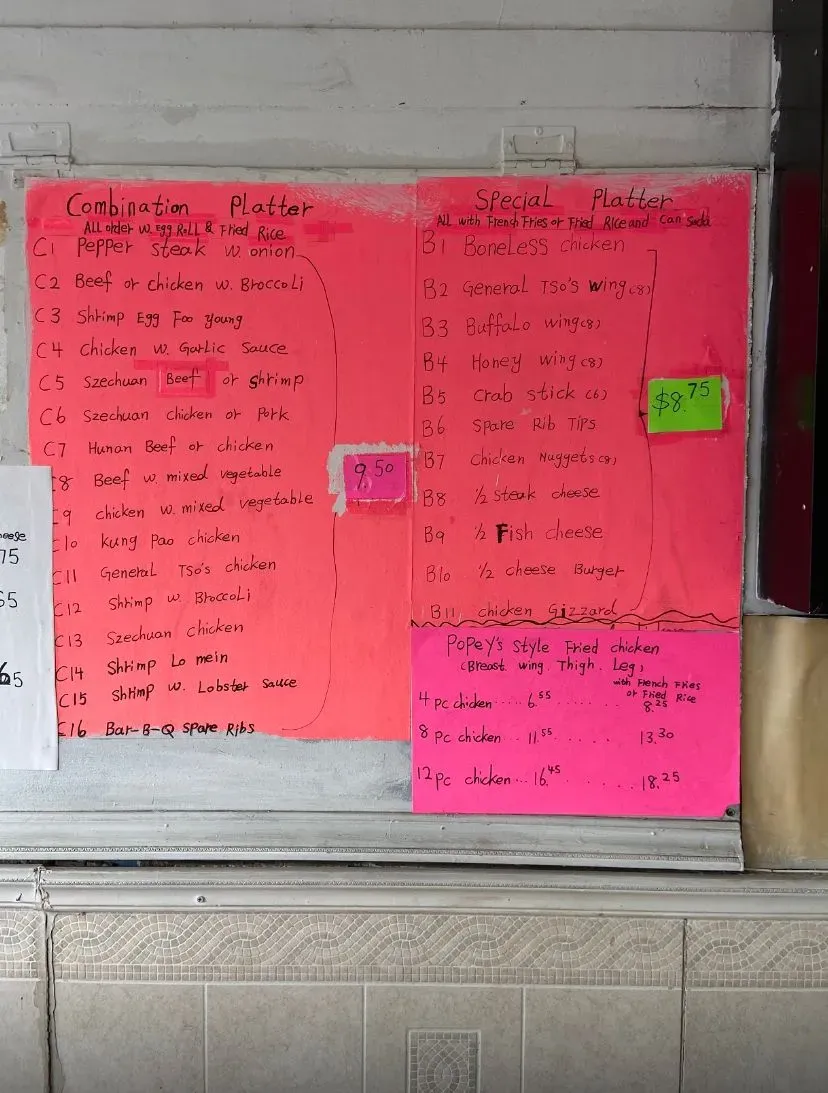 Combination Platter
All order w. Egg Roll & Fried Rice
C1 Pepper steak w. onion
C2 Beef or chicken w. Broccoli
C3 Shrimp Egg Foo Young
C4 Chicken w. Garlic Sauce
C5 Szechuan Beef or Shrimp
C6 Szechuan chicken or Pork
C7 Hunan Beef or chicken
C8 Beef w. mixed vegetable
C9 chicken w. mixed vegetable
C10 Kung Pao chicken
C11 General Tso's chicken
C12 Shrimp w. Broccoli
C13 Szechuan chicken
C14 Shrimp Lo mein
C15 Shrimp w. Lobster Sauce
C16 Bar-B-Q Spare Ribs
9.50
Special Platter
All with French Fries or Fried Rice and Can Soda
B1 Boneless chicken
B2 General Tso's Wing (8)
B3 Buffalo wing (8)
B4 Honey wing (8)
B5 Crab stick (6)
B6 Spare Rib Tips
B7 Chicken Nuggets (8)
B8 1/2 Steak cheese
B9 1/2 Fish cheese
B10 1/2 cheese Burger
B11 chicken Gizzard
$8.75
Popey's Style Fried chicken
(Breast. wing. Thigh. Leg)
with French Fries
or Fried Rice
4 pc chicken ..... 6.55 ...... 8.25
8 pc chicken .. 11.55 ..... 13.30
12 pc chicken ... 16.45 ...... 18.25
75
65